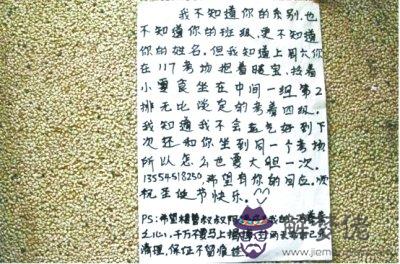 我不知道你的系别,也
不知道你的班级,更不知道
你的姓名,但我知道上周六你
在117考场抱着暖宝,拎着
小零食坐在中间一组第2
排无比淡定的考着四级。
我知道我不会运气好到下
次还和你坐到同一个考场
所以怎么也要大胆一次。
13554518250,希望有你的回应。顺
祝圣诞节快乐
PS:希望楼管叔叔
之心,千万不要马上
清理,保证不留痕迹
解梦佬
www.jieme